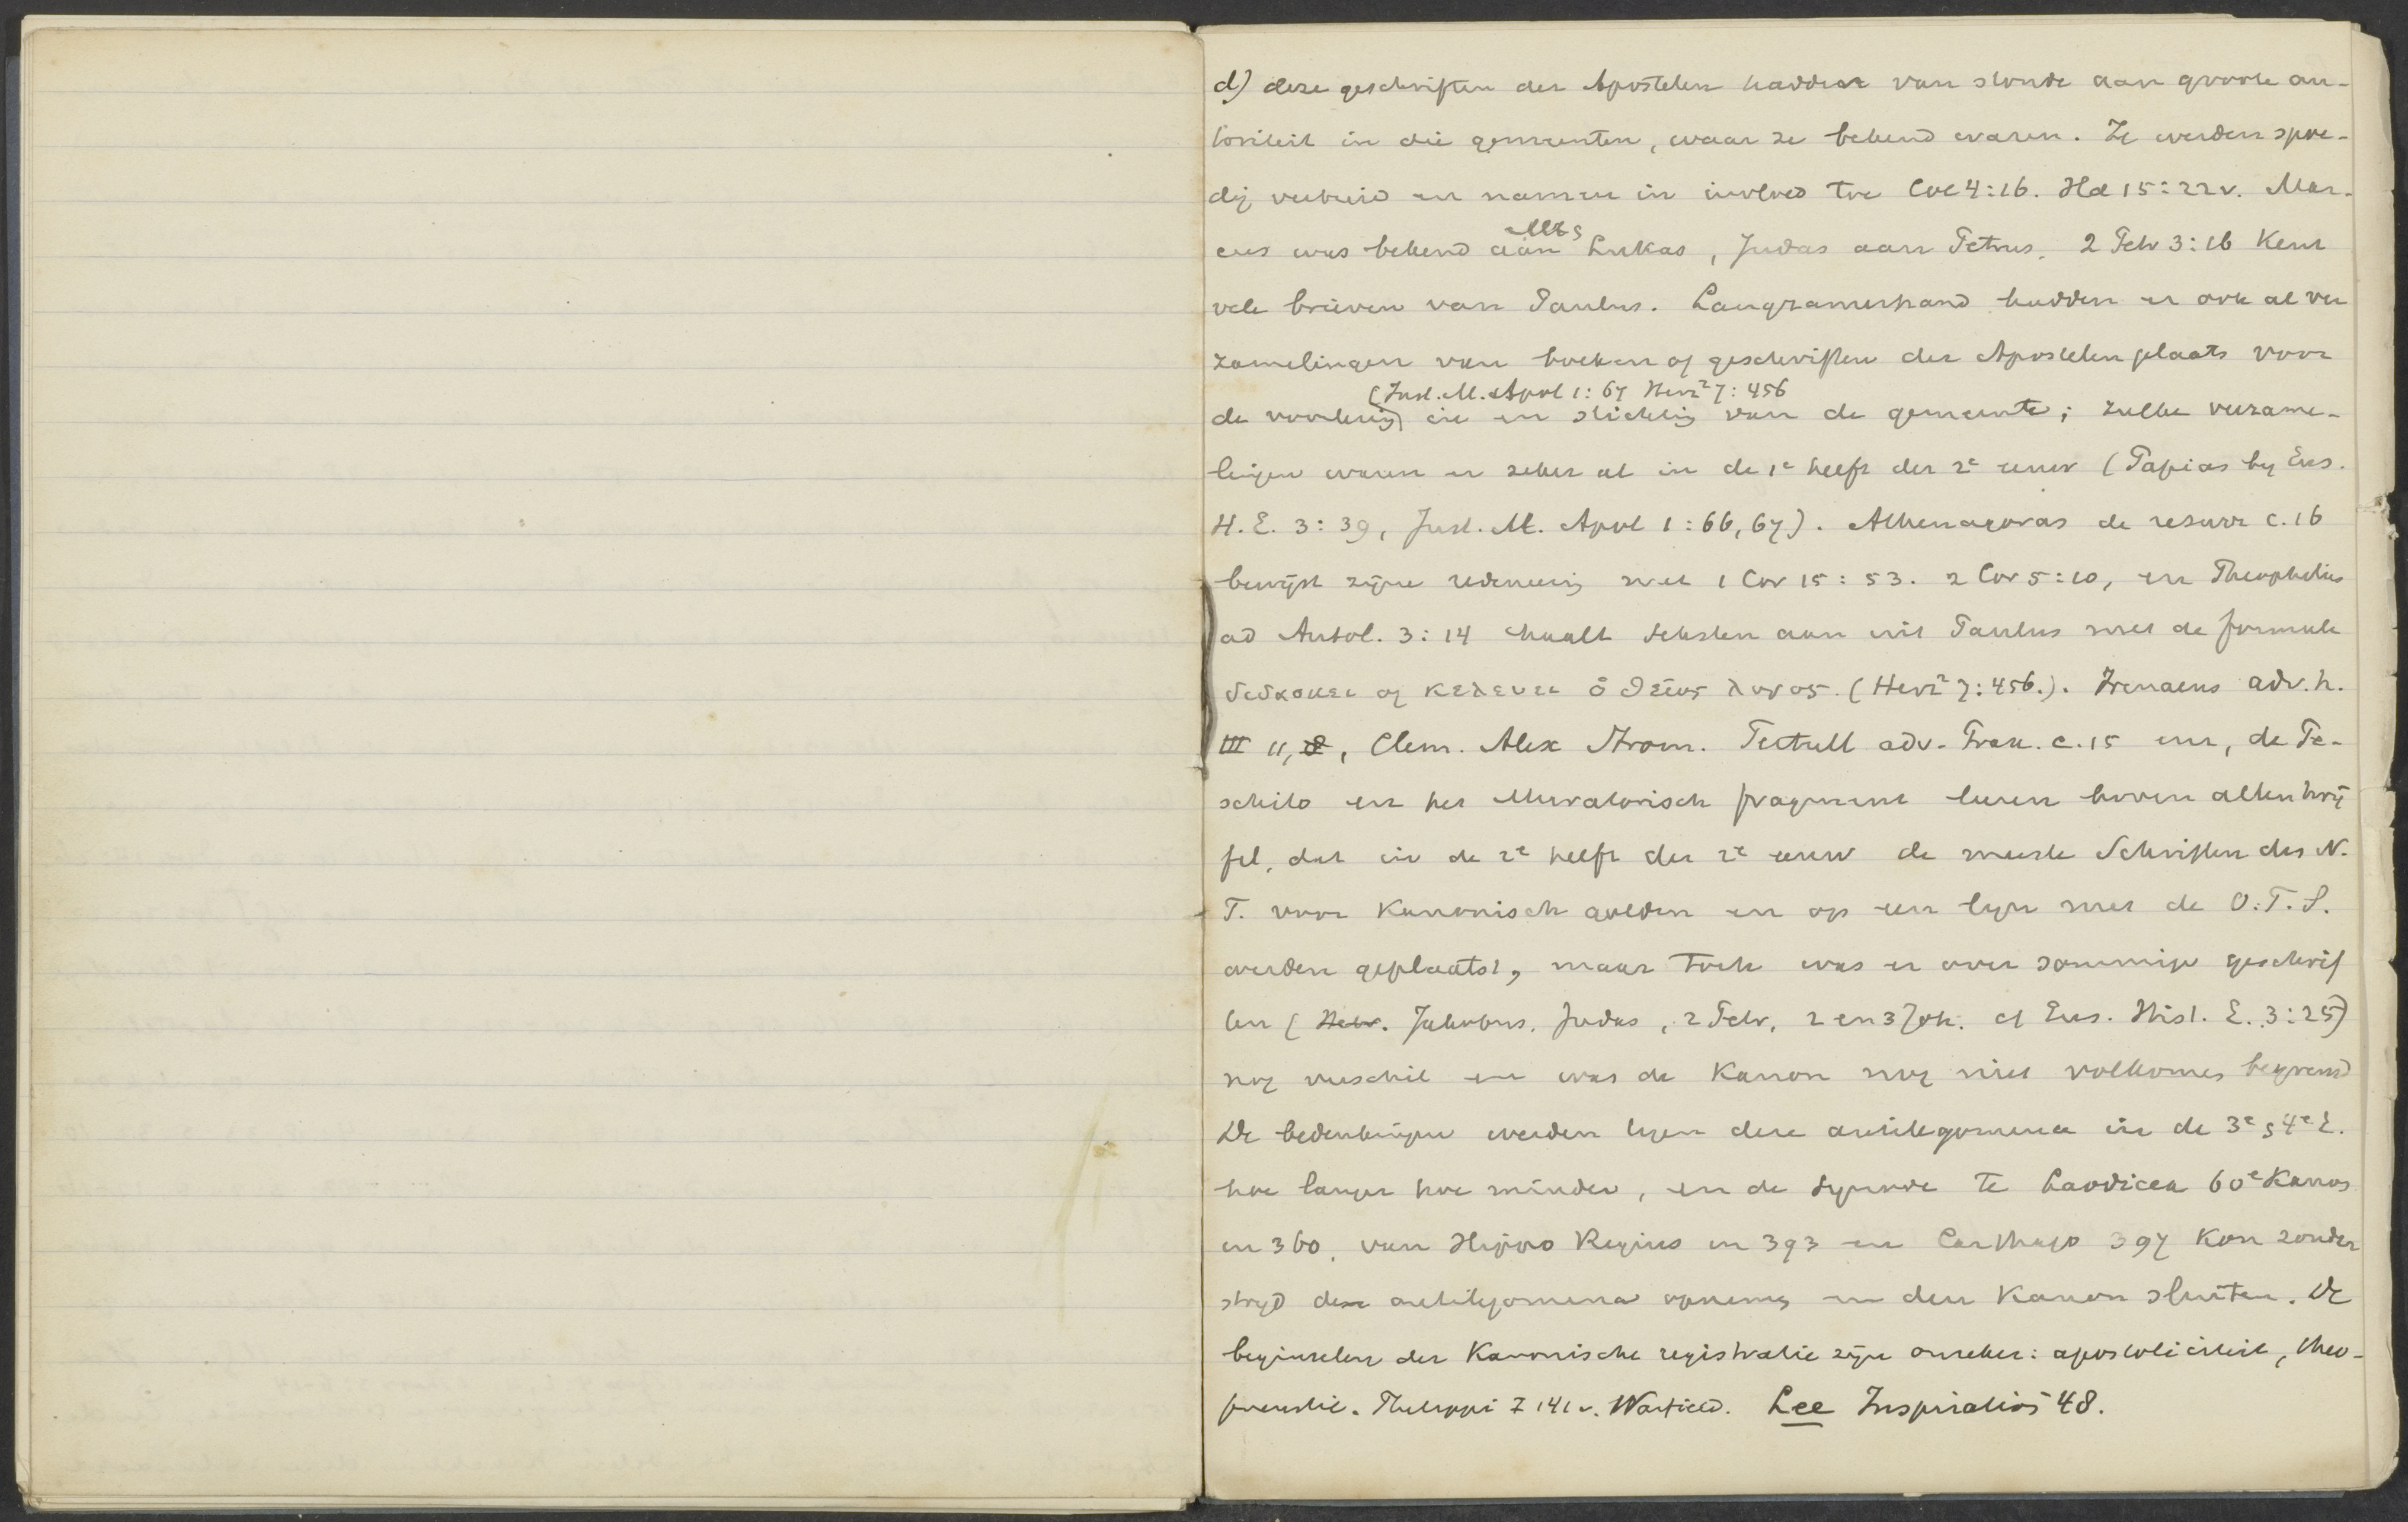 d) deze geschriften der Apostelen hadden van stonde aan groote au-
toriteit in die gemeenten, waar ze bekend waren. Ze werden spoe-
dig verbreid en namen in invloed toe Col 4:16. Hd 15:22v. Mar-
Mt &
cus was bekend aan Lukas, Judas aan Petrus. 2 Petr 3:16 Kent
vele brieven van Paulus. Langzamerhand hadden er ook al ver
zamelingen van boeken of geschriften der Apostelen plaats voor
(Just. M. Apol 1:67 Herz² 7:456
de voorlezing) in en stichting van de gemeente; zulke verzame-
lingen waren er zeker al in de 1e helft der 2e eeuw (Papias by Eus.
H.E. 3:39, Just. M. Apol 1:66,67). Athenagoras de resurr c.16
bewijst zijne redeneering met 1 Cor 15:53. 2 Cor 5:10, en Theophilus
ad Autol. 3:14 haalt teksten aan uit Paulus met de formule
διδασκει of κελευει ὁ θειος λογος. (Herz² 7:456.). Irenaeus adv. h.
III 11, 8, Clem. Alex Strom. Tertull adv. Prax. c.15 enz, de Pe-
schito en het Muratorisch fragment leeren boven allen twij
fel, dat in de 2e helft der 2e eeuw de meeste Schriften des N.
T. voor Kanonisch golden en op een lijn met de O.T.S.
werden geplaatst, maar toch was er over sommige geschrif
ten (Hebr. Jakobus, Judas, 2 Petr, 2 en 3 Joh. cf Eus. Hist. E. 3:25)
nog verschil en was de Kanon nog niet volkomen begrensd
De bedenkingen werden tegen deze antilegomena in de 3e & 4e E.
hoe langer hoe minder, en de Synode te Laodicea 60e Kanon
in 360, van Hippo Regius in 393 en Carthago 397 Kon zonder
stryd deze antilegomena opnemen en den Kanon sluiten. De
beginselen der Kanonische registratie zijn onzeker: apostoliciteit, theo-
pneustie. Philippi I 141v. Warfield. Lee Inspiration 48.